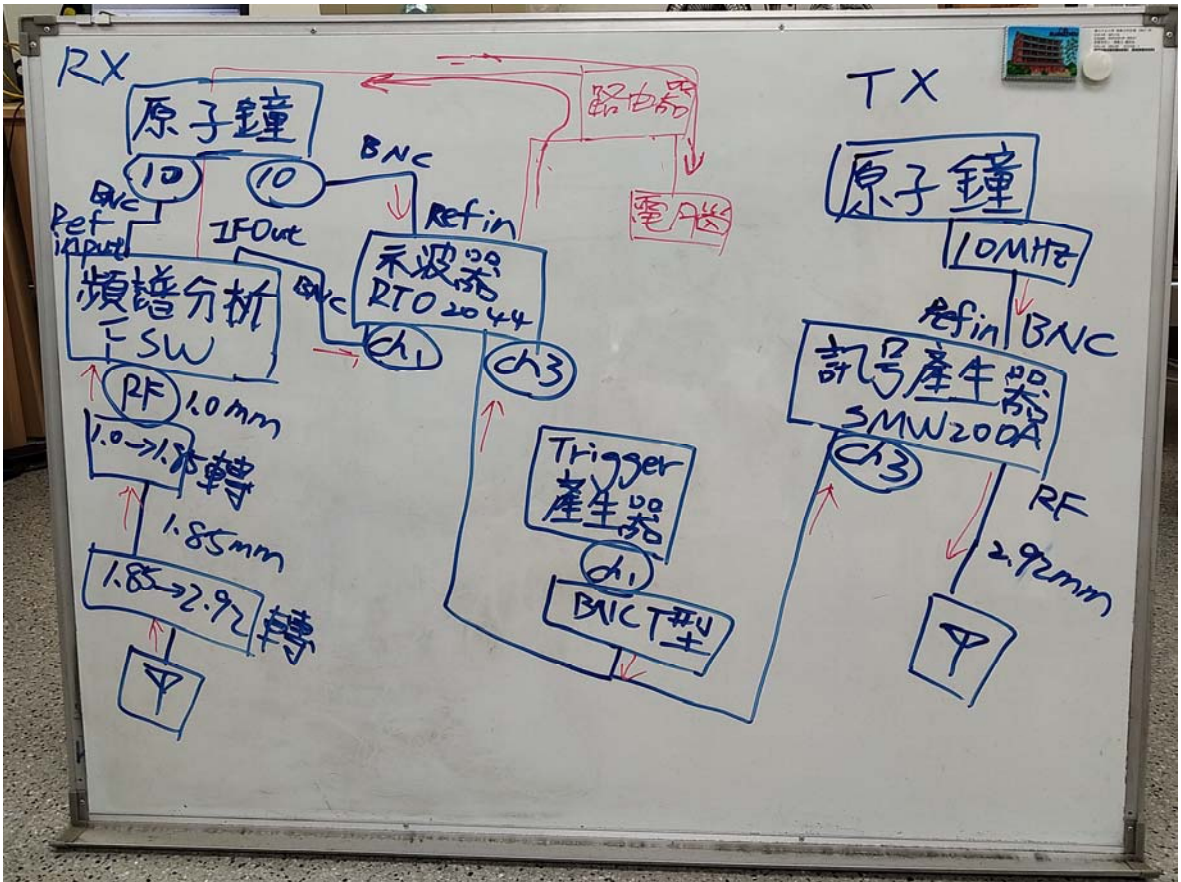 RX
原子鐘
10
10
BNC
BNC
Ref
input
IF Out
BNC
Ref in
頻譜分析
FSW
示波器
RTO 2044
ch1
ch3
RF
1.0mm
1.0→1.85轉
1.85mm
1.85→2.92轉
路由器
電腦
Trigger
產生器
ch1
BNC T型
TX
原子鐘
10MHz
Ref in
BNC
訊号產生器
SMW200A
ch3
RF
2.92mm